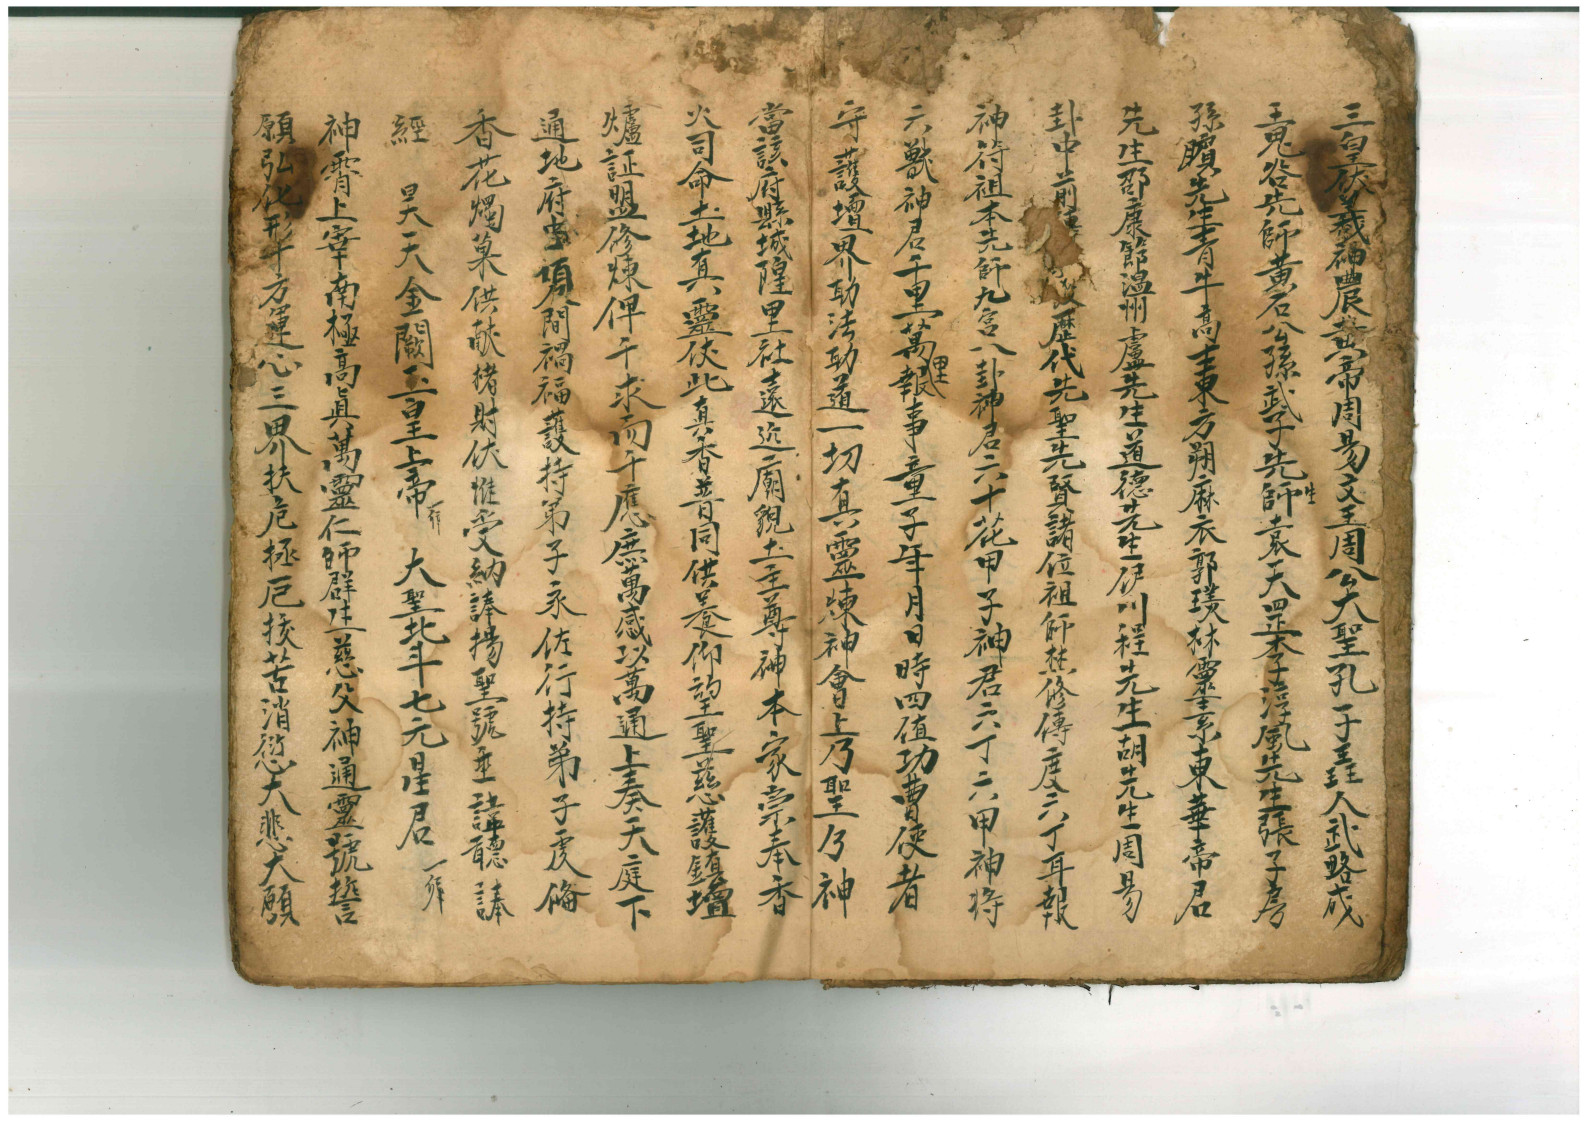 三皇伏羲神農黃帝周易文王周公大聖孔子至聖人武略成
王鬼谷先師黃石公孫武子先師生袁天罡李淳風先生張子房
孫臏先生青牛高士東方朔麻衣郭璞林靈素東華帝君
先生邵康節溫州盧先生道德先生伊川程先生胡先生周易
卦中前 歷代先聖先賢諸位祖師焚修傳度六丁耳報
神符祖本先師九宮八卦神君六十花甲子神君六丁六甲神將
六獸神君千里萬里報事童子年月日時四值功曹使者
守護壇界助法助道一切真靈煉神會上乃聖乃神
當該府縣城隍里社遠近廟貌土主尊神本家崇奉香
火司命土地真靈伏此真香普同供養仰望聖慈護鎮壇
爐証盟修煉俾千求而千應庶萬感以萬通上奏天庭下
通地府 須間禍福護持弟子永佐行持弟子虔備
香花燭菓供献楮財伏惟受納諱揚聖號垂 聽諱
經 昊天金闕玉皇上帝 大聖北斗七元星君
神霄上宰南極高眞萬靈仁師群生慈父神通靈號誓
願弘化形十方運心三界扶危拯厄拔苦消愆大悲大願